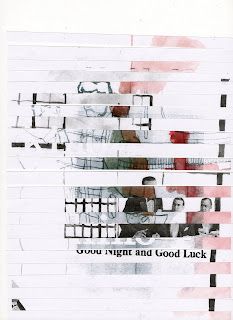 Good Night and Good Luck